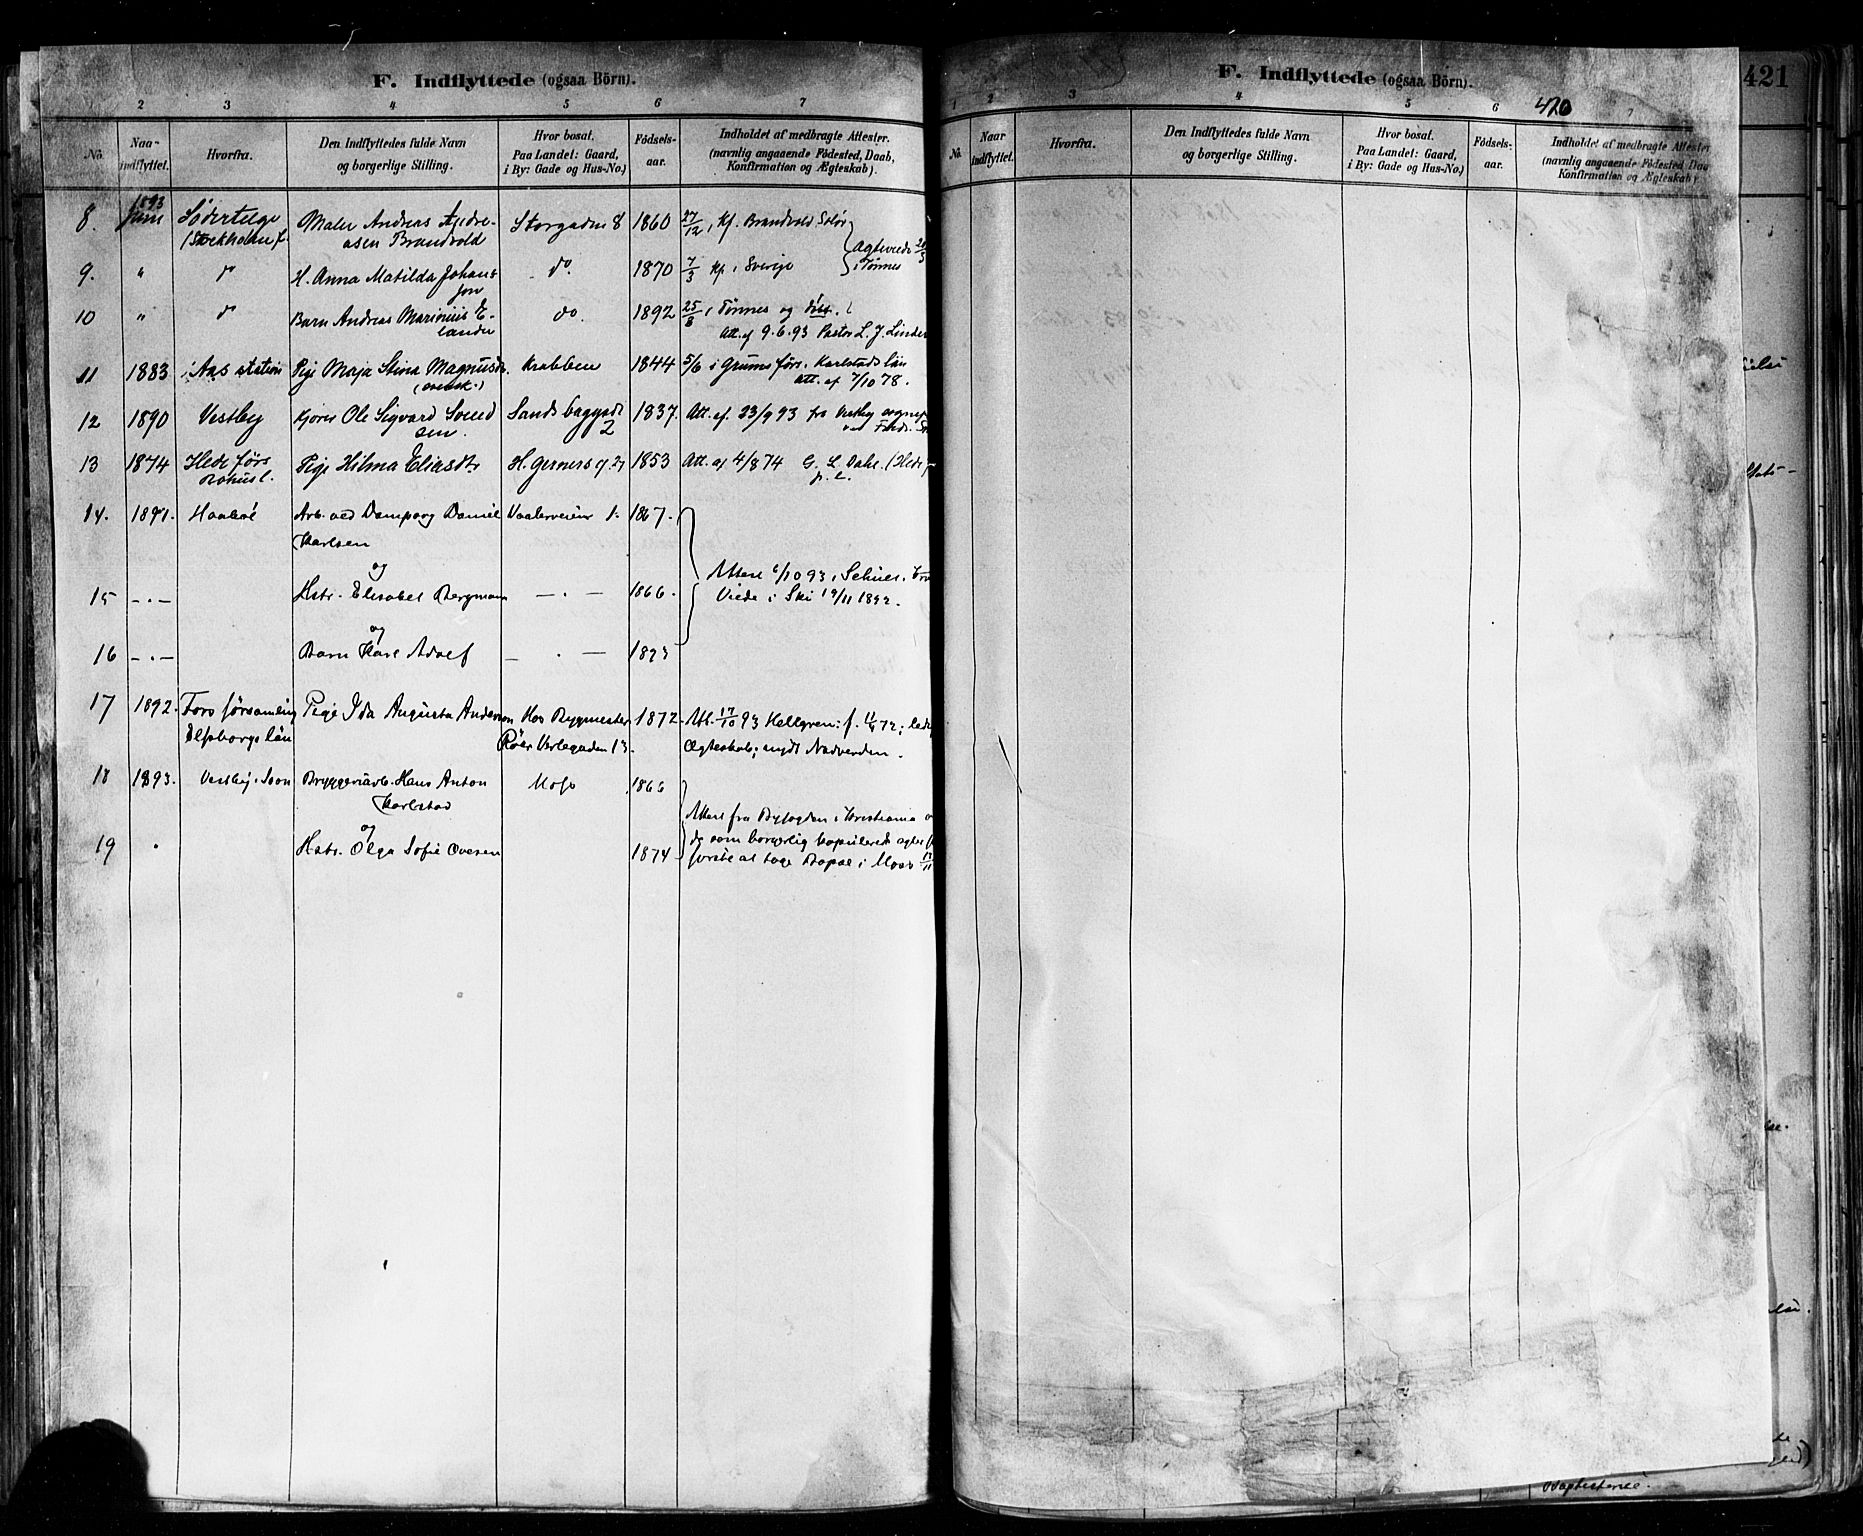 F. Indflyttede (ogsaa Börn).
2 3 4 5 6 7
No. Naar indflyttet. Hvorfra. Den Indflyttedes fulde Navn og borgerlige Stilling. Hvor bosat. Paa Landet: Gaard, i By: Gade og Hus-No.) Födsels-aar. Indholdet af medbragte Attester. (navnlig angaaende Födested, Daab, Konfirmation og Ægteskab).
8. 1893 Juni Södertelge Maler Andreas Andre- Storgaden 8 1860 27/12 i Kf. Brandvold Solör
(Stockholm l. asen Brandvold Ægteviede
9. " do H. Anna Matilda Johans do. 1870 7/3 Kf. i Sverige i Tönnes
son
10 " do Barn Andreas Marinius E- do. 1892 25/8 i Tönnes og döbt.
lander Att. af 9.6.93 Pastor L. J. Linder
11 1883 i Aas station Pige Maja Stina Magnusdr. Krabben 1844 5/6 i Grums förs. Karlstads län
(svensk.) Att. af 7/10 78.
12 1890 Vestby Kjörer Ole Sigvard Svend Sandsbaggadt 1837. Att. af. 23/9 93 fra Vestby sogne
sen. 2
13 1874 Hede förs Pige Hilma Eliasdr. H. Gerners g. 27 1853 Att. af 4/8 74 G. L. Dahl. (Hede
Bohusl. p. l.
14. 1891. Haabøl Arb. ved Dampsag Daniel Vaalerveien 1. 1867.
Karlsen
og Attest 6/10 93
15 — . — Hstr. Elisabet Bergmann — . — 1866. Viede i Ski 19/11 1892.
og
16 — . — Barn Karl Adolf — . — 1893
17 1892. Fors församling Pige Ida Augusta Anderson Hos Bygmester 1872. Att. 17/10 93 Hellgren: f. 11/4 72; ledig
Elfsborgs län Röer Verlegaden 13. Ægteskab; nydt Nadverden.
18 1893. Vestby, Soon Bryggeriarb. Hans Anton Moss 1866
Karlstad
og Attest fra Byfogden i Kristiania
19 . Hstr. Olga Sofie Ovesen 1874 som borgerlig kopulerede
i Moss
F. Indflyttede (ogsaa Börn).
420
1 2 3 4 5 6 7
No. Naar indflyttet. Hvorfra. Den Indflyttedes fulde Navn og borgerlige Stilling. Hvor bosat. Paa Landet: Gaard, i By: Gade og Hus-No.) Födsels-aar. Indholdet af medbragte Attester (navnlig angaaende Födested, Daa Konfirmation og Ægteskab)
421